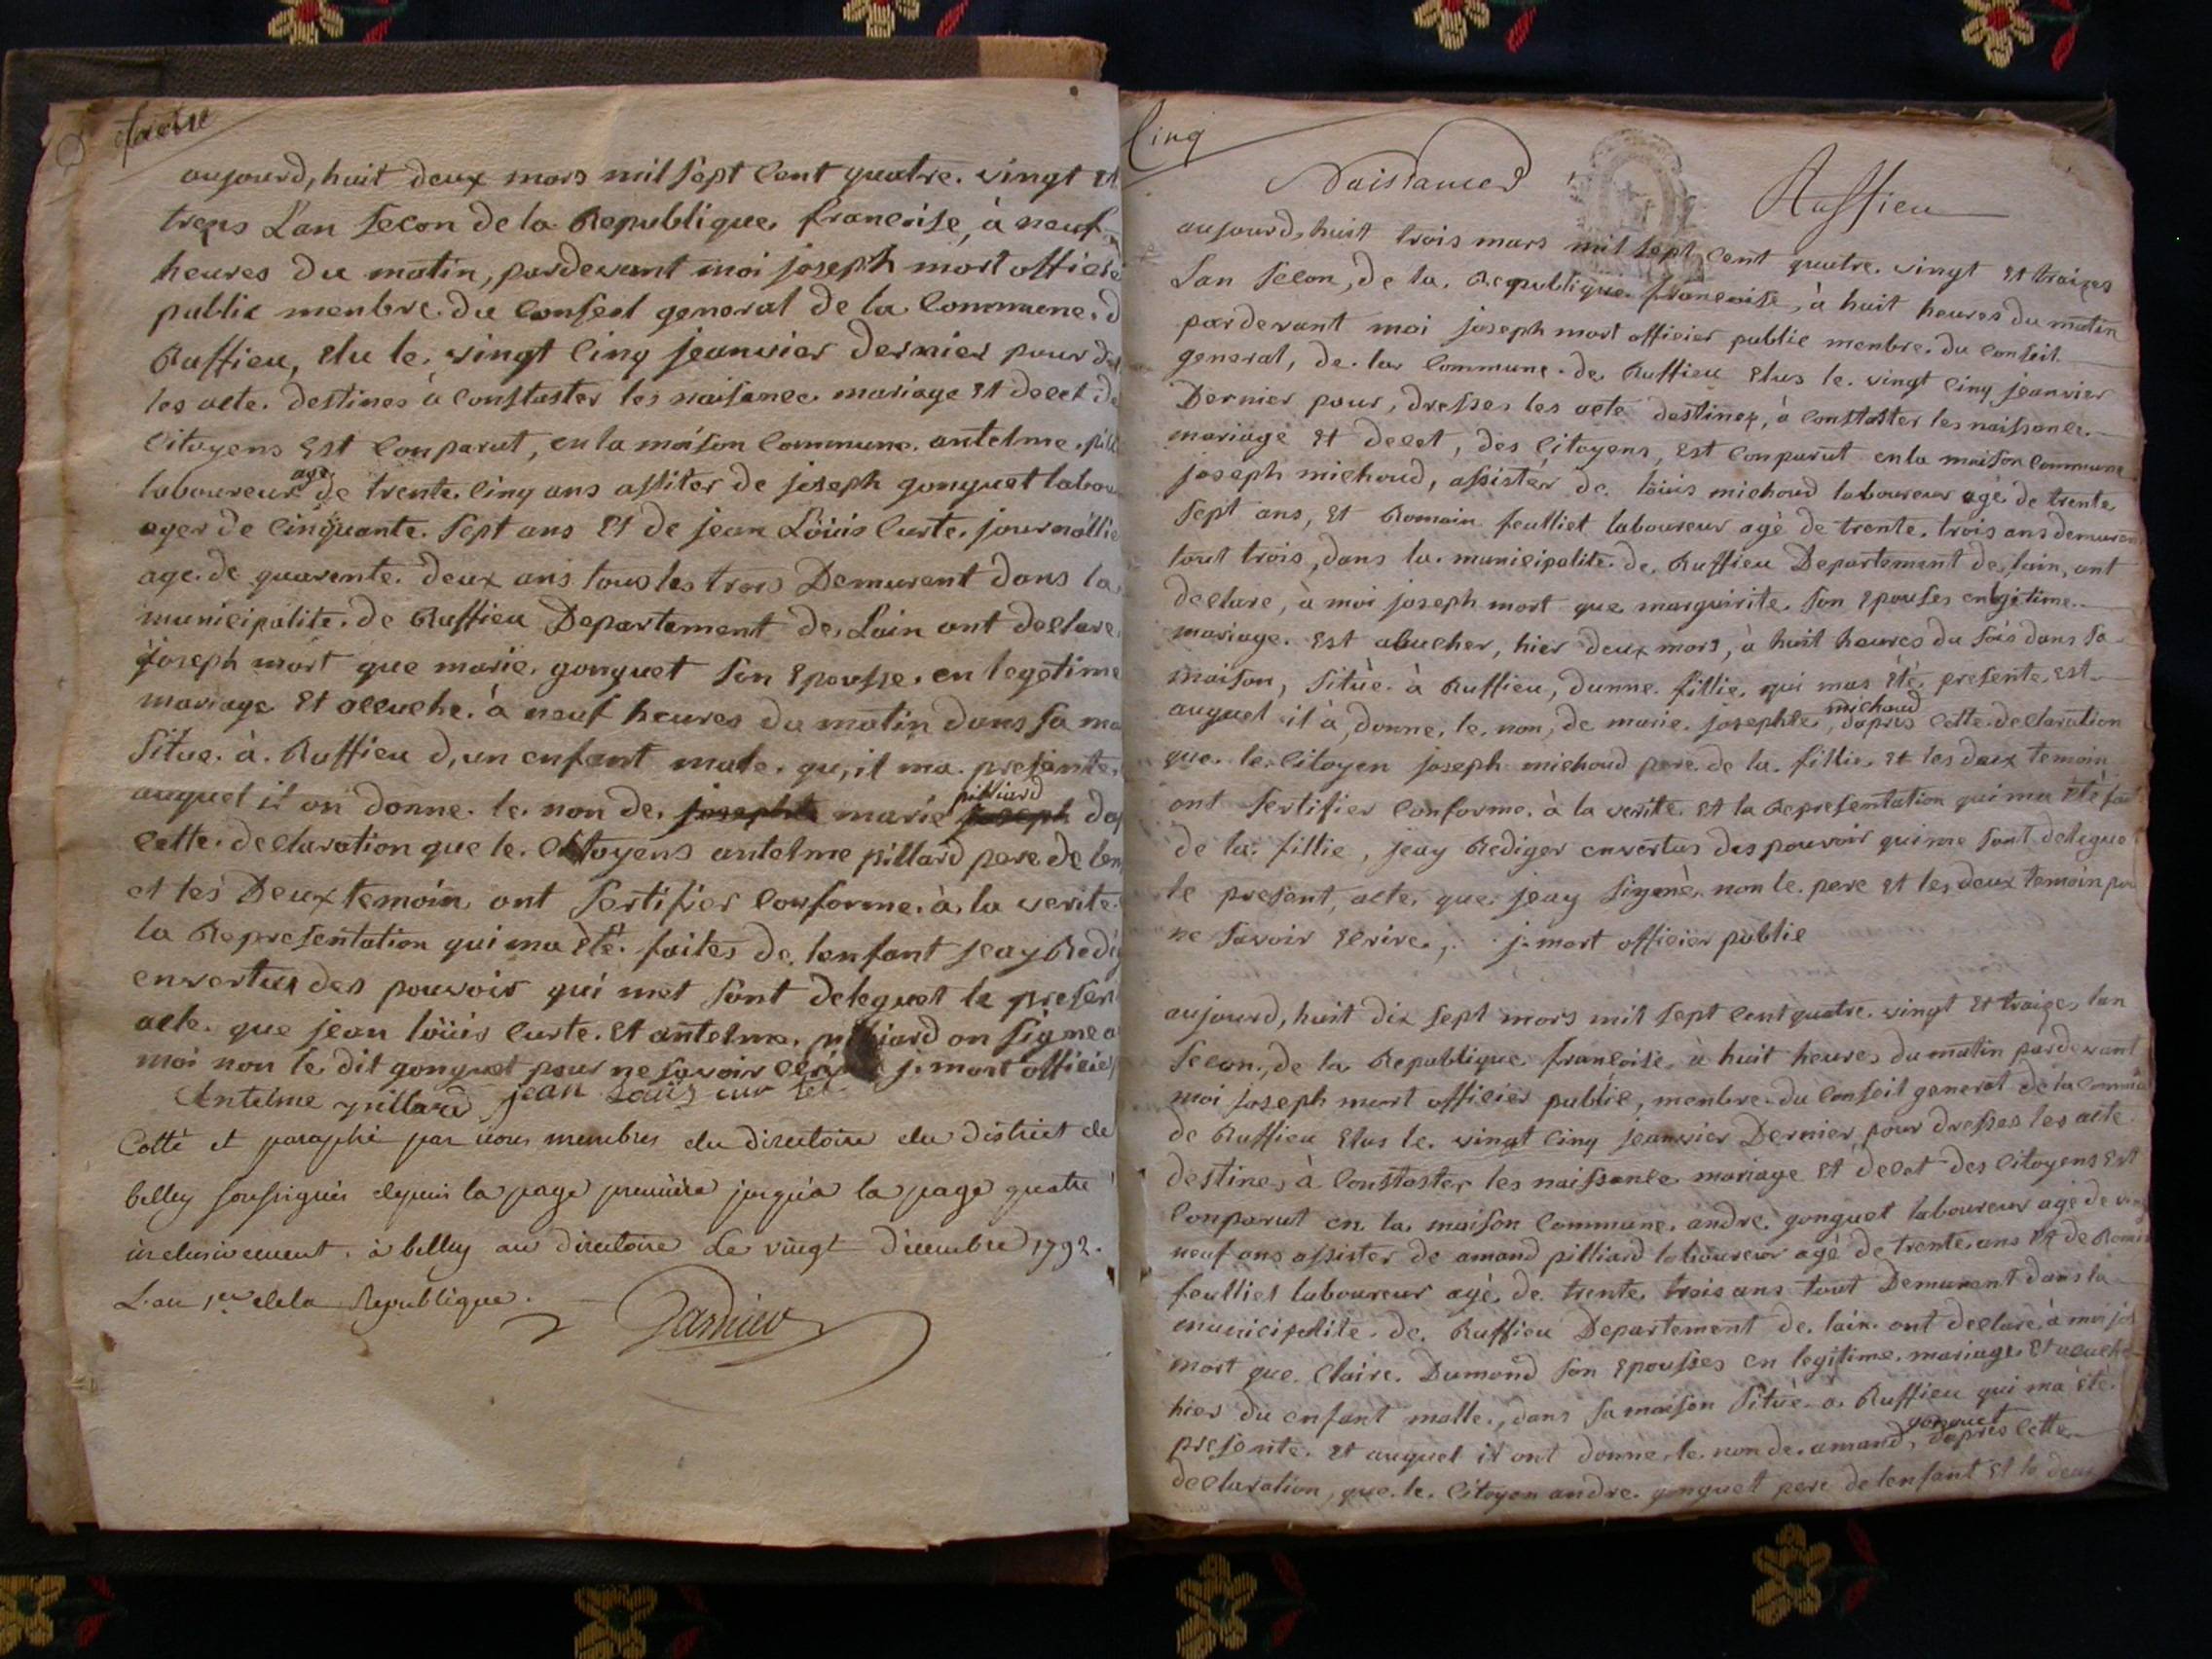 aujourd,huit deux mars mil sept cent quatre. vingt et
treps L'an secon de la Republique francoise, à neuf
heures du matin, pardevant moi joseph mort officie
public menbre. du conseil general de la Commune. d
Ruffieu, elu le. vingt cinq jeanvier dernier pour d
les acte. destines à constaster les naisance mariage et decet d
citoyens est conparut, en la maison Commune. antelme. pill
laboureur age de trente. cinq ans assiter de joseph gonguet labou
ager de cinquante. sept ans et de jean Löuis curte. journallie
age. de quarente. deux ans tous les trois Demurent dans la
municipalite. de Ruffieu Departement de, Lain ont declare
joseph mort que marie. gonguet son epousse. en legetime
mariage et accuche. à neuf heures du matin dans sa ma
situe. à. Ruffieu d,un enfant male. qu,il ma. presente.
auquel il on donne. le. non de. josephte marie joseph pilliard da
cette. declaration que le. citoyens antelme pillard pere de len
et les Deux temoin ont sertifier conforme. à. la verite.
la Representation qui ma été. faites de. lenfant jeay Redig
envertus des pouvoir qui met sont deleguet le presen
acte. que jean löuis curte. et antelme. pilliard on signe a
moi non le dit gonguet pour ne savoir j. mort officie
Antelme pillard jean Louis cur tet
Cotté et paraphé par nous membres du directoire du district de
belley soussignés depuis la page première jusqu'a la page quatre
inclusivement. à belley au directoire le vingt décembre 1792.
L'an 1er de la Republique.
Cinq
Naissances Ruffieu
aujourd,huit trois mars mil sept cent quatre. vingt et traizes
Lan secon, de la. Republique francoise, à huit heures du matin
pardevant moi joseph mort officier public menbre. du conseil
general, de. la Commune. de Ruffieu elus le. vingt cinq jeanvier
Dernier pour, dresses les acte destinez, à constaster les naissance.
mariage et decet, des citoyens, est conparut en la maison commune
joseph michoud, assister de. löuis michoud laboureur agé de trente
sept ans, et Romain feulliet laboureur agé de trente. trois ans demuren
tout trois, dans la. municipalite. de. Ruffieu Departement de, lain, ont
declare, à moi joseph mort que marguirite. son epouses en legitime.
mariage. est abucher, hier deux mars, à huit heures du sois dans sa
maison, situè. à Ruffieu, dunne. fillie. qui mas été. presente, est
auquel il à, donne, le. non, de marie. josephte, michoud dapres cette. declaration
que. le. citoyen joseph michoud pere. de la. fillie. et les deux temoin
ont sertifier conforme. à la verite. et la Representation qui ma été fai
de la. fillie, jeay Rediger envertus des pouvoir qui me sont delegue
le present, acte. que. jeay signè. non le. pere et les deux temoin pou
ne savoir ecrire. j. mort officier public
aujourd,huit dix sept mars mil sept cent quatre. vingt et traizes lan
secon., de la Republique. francoise. à huit heures du matin pardevant
moi joseph mort officier public, menbre. du conseil general de la commun
de Ruffieu elus le. vingt cinq jeanvier Dernier pour dresses les acte
destines à constaster les naissance mariage et decet des citoyens est
conparut en la. maison Commune. andre. gonguet laboureur agé de vin
neuf ans assister de amand pilliard laboureur agé de trente ans et de Romin
feulliet laboureur agé. de. trente. trois ans tout Demurent dans la
municipalite. de. Ruffieu Departement de. lain. ont declare. à moi jos
mort que. Claire. Dumond son epousses en legitime. mariage. et acuche
hier du enfant malle., dans sa maison situè. à. Ruffieu qui ma été.
presente. et auquel il ont donne. le. non de. amand, gonguet dapres cette
declaration, que. le. citoyen andre. gonguet pere de lenfant et le deux